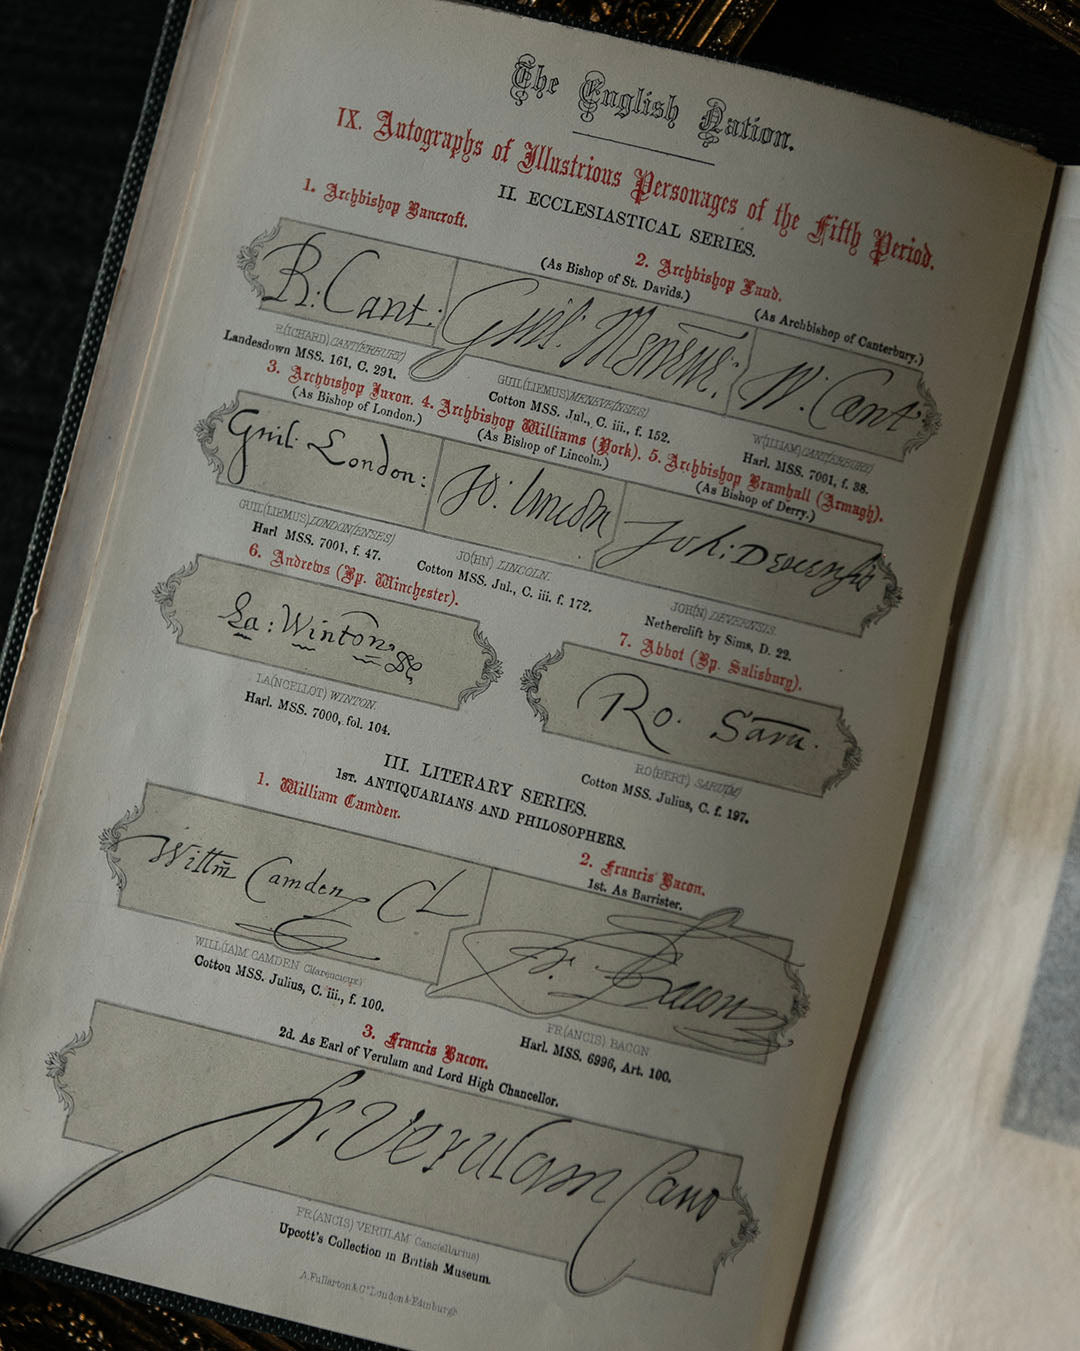 The English Nation.
IX. Autographs of Illustrious Personages of the Fifth Period.
II. ECCLESIASTICAL SERIES.
1. Archbishop Bancroft.
2. Archbishop Laud.
(As Bishop of St. Davids.)
(As Archbishop of Canterbury.)
R: Cant:
Guil: Meneve:
W: Cant
R(ICHARD) CANT(ERBURY)
Landesdown MSS. 161, C. 291.
GUIL(LIEMUS) MENEVE(NSES)
Cotton MSS. Jul., C. iii., f. 152.
W(ILLIAM) CANT(ERBURY)
Harl. MSS. 7001, f. 38.
3. Archbishop Juxon. 4. Archbishop Williams (York). 5. Archbishop Bramhall (Armagh).
(As Bishop of London.)
(As Bishop of Lincoln.)
(As Bishop of Derry.)
Guil: London:
Jo: Lincoln
Joh: Derensis
GUIL(LIEMUS) LONDON(ENSES)
Harl MSS. 7001, f. 47.
JO(HN) LINCOLN.
Cotton MSS. Jul., C. iii. f. 172.
JOH(N) DEVERNSIS.
Netherclift by Sims, D. 22.
6. Andrews (Bp. Winchester).
7. Abbot (Bp. Salisbury).
La: Winton,
Ro. Saru.
LA(NCELLOT) WINTON.
Harl. MSS. 7000, fol. 104.
RO(BERT) SARU(M)
Cotton MSS. Julius, C. f. 197.
III. LITERARY SERIES.
1ST. ANTIQUARIANS AND PHILOSOPHERS.
1. William Camden.
2. Francis Bacon.
1st. As Barrister.
Willm Camden Cl
Fr. Bacon
WILL(IA)M CAMDEN (Clarencieux)
Cotton MSS. Julius, C. iii., f. 100.
FR(ANCIS) BACON
Harl. MSS. 6996, Art. 100.
3. Francis Bacon.
2d. As Earl of Verulam and Lord High Chancellor.
Fr. Verulam Canc
FR(ANCIS) VERULAM Canc(ellarius)
Upcott's Collection in British Museum.
A. Fullarton & Co. London & Edinburgh